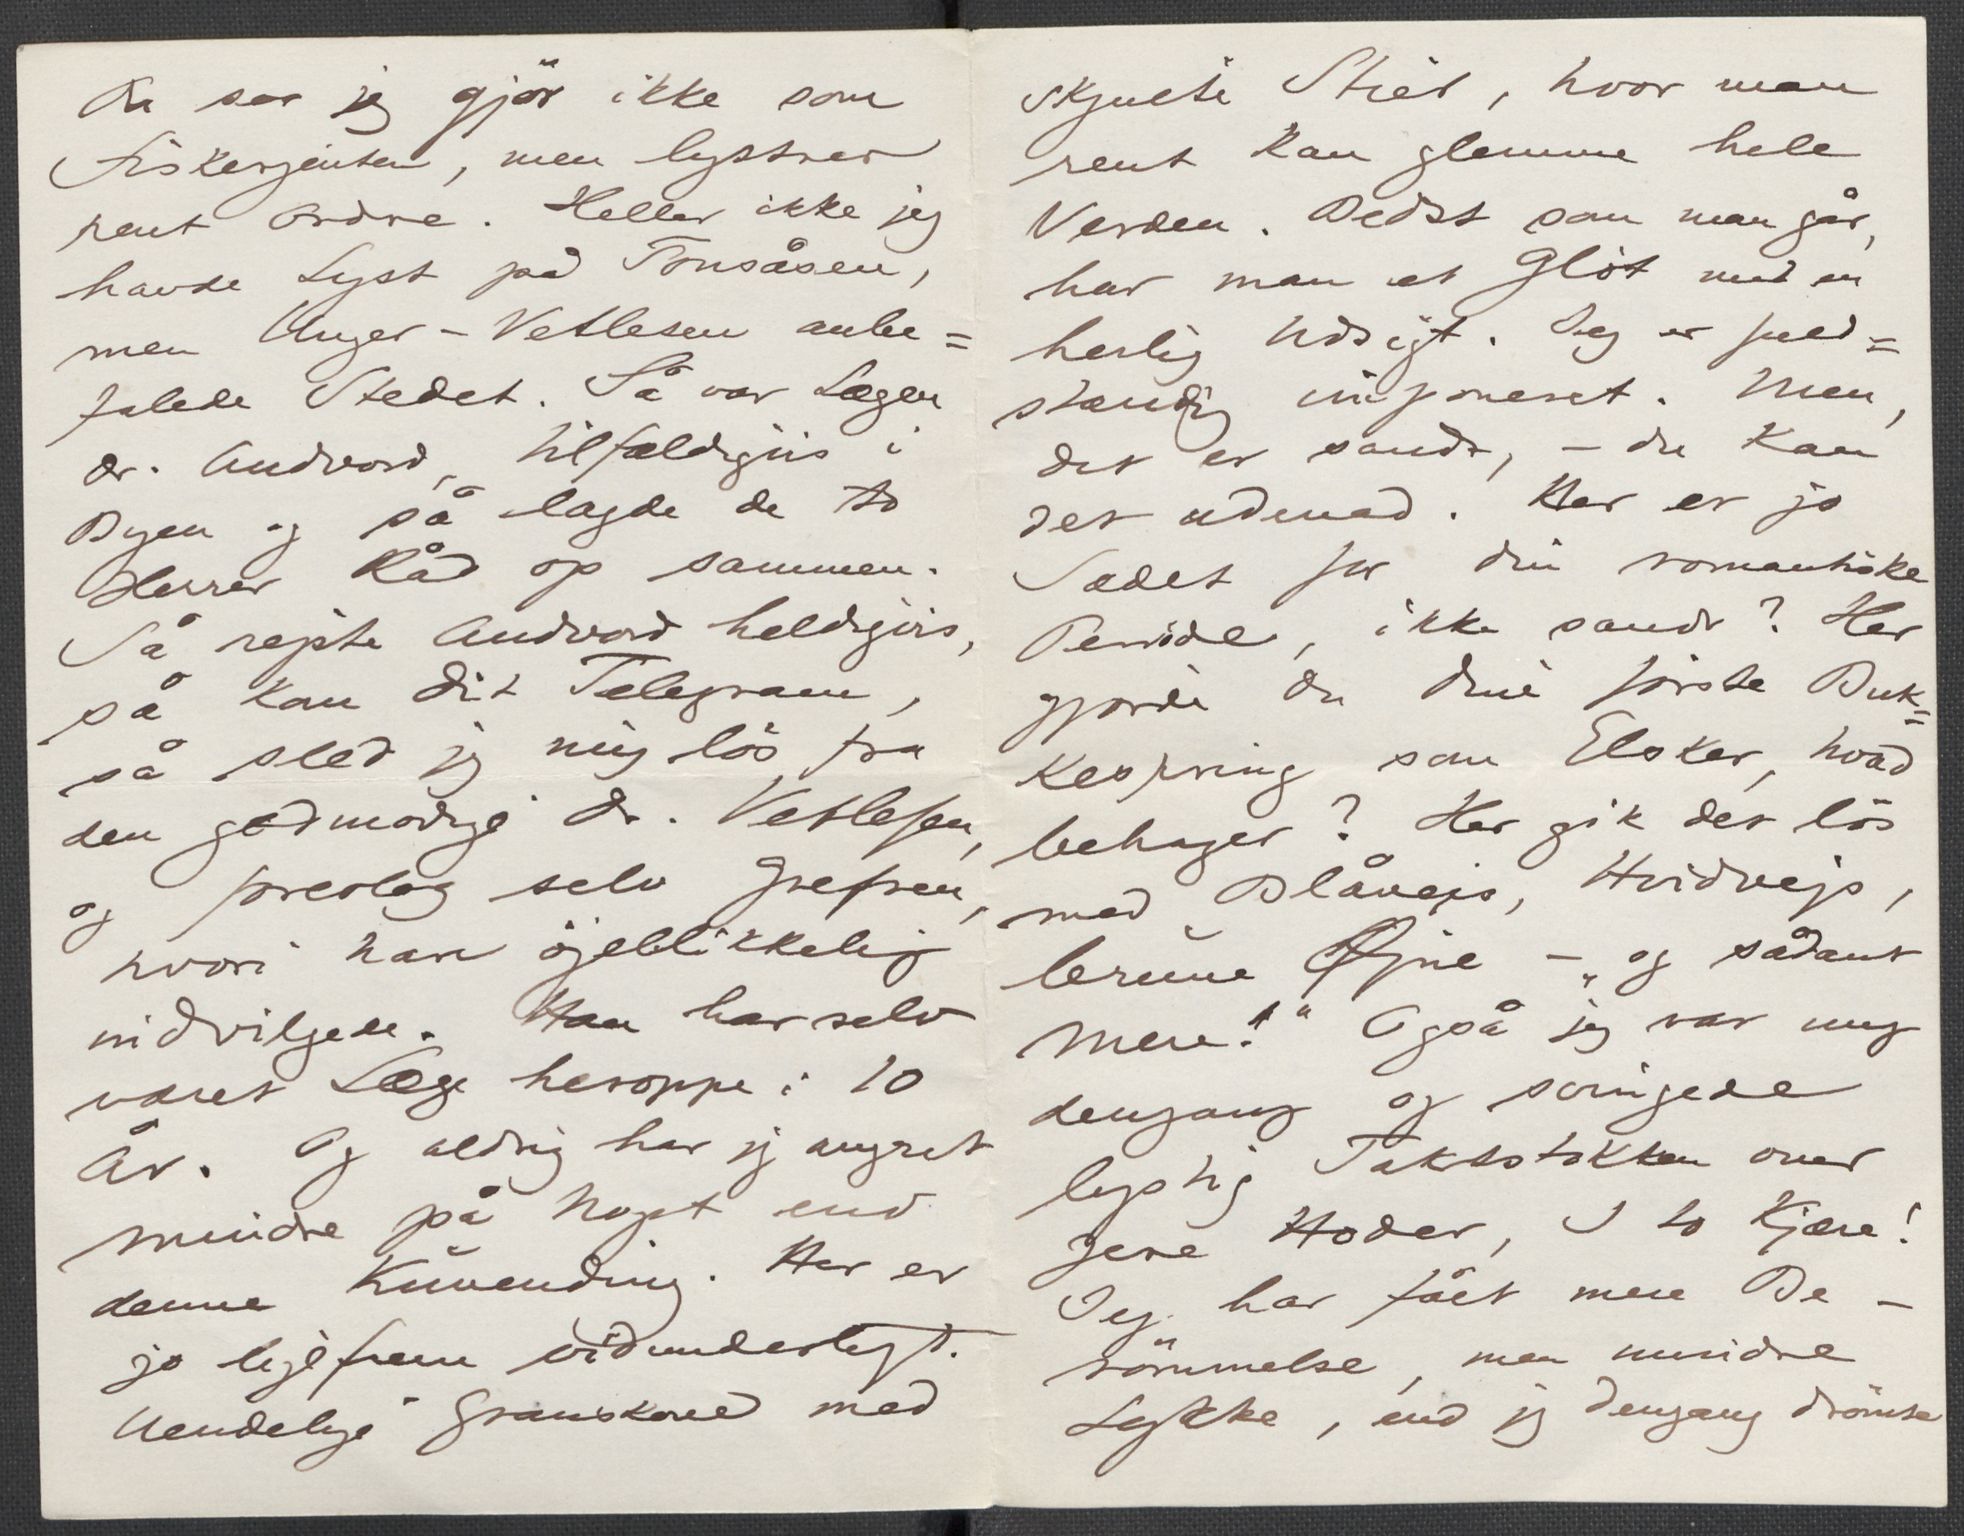 Du ser jeg gjör ikke som
Fiskerjenten, men lystrer
rent Ordre. Heller ikke jeg
havde Lyst på Tonsåsen,
men Unger-Vetlesen anbe=
falede Stedet. Så var Lægen
Dr. Andvord, tilfældigvis i
Byen og så lagde de to
Herrer Råd op sammen.
Så rejste Andvord heldigvis,
så kom dit Telegram,
så sled jeg mig lös fra
den godmodige Dr. Vetlesen,
og foreslog selv Grefsen,
hvori han öjeblikkelig
indvilgede. Han har selv
været Læge heroppe i 10
År. Og aldrig har jeg angret
mindre på Noget end
denne Kuvending. Her er
jo ligefrem vidunderligt.
Uendelige Granskove med
skjulte Stier, hvor man
rent kan glemme hele
Verden. Bedst som man går,
har man et Glöt med en
herlig Udsigt. Jeg er fuld=
standig imponeret. Men,
det er sandt, – du kan
det udenad. Her er jo
Sædet for din romantiske
Periode, ikke sandt? Her
gjorde du dine förste Buk=
kespring som Elsker, hvad
behager? Her gik det lös
med Blåvejs, Hvidvejs,
brune Øjne – „og sådant
Mere!" Også jeg var ung
dengang og svingede
lystig Taktstokken over
Jere Hoder, I to Kjære!
Jeg har fået mere Be-
römmelse, men mindre
Lykke, end jeg dengang drömte